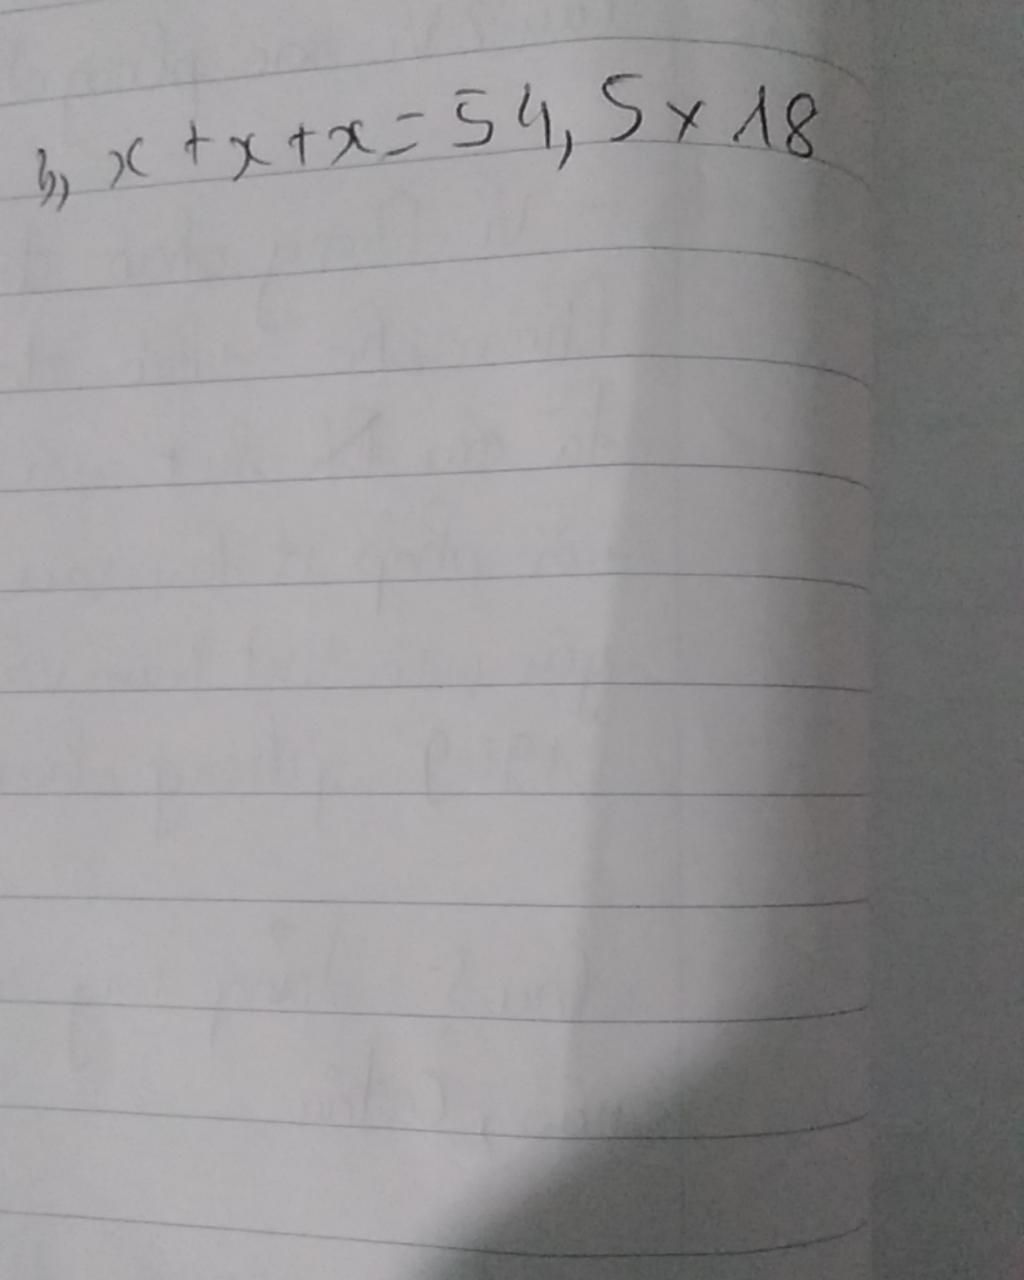 b, x + x + x = 54,5 x 18